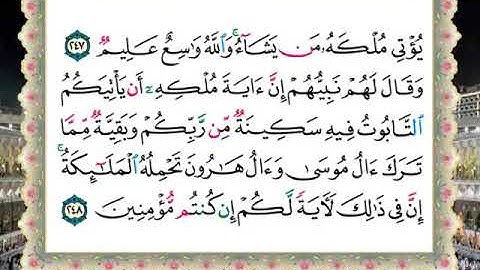 يُؤْتِي مُلْكَهُۥ مَن يَشَآءُۚ وَٱللَّهُ وَٰسِعٌ عَلِيمٌ ٢٤٧
وَقَالَ لَهُمْ نَبِيُّهُمْ إِنَّ ءَايَةَ مُلْكِهِۦٓ أَن يَأْتِيَكُمُ
ٱلتَّابُوتُ فِيهِ سَكِينَةٌ مِّن رَّبِّكُمْ وَبَقِيَّةٌ مِّمَّا
تَرَكَ ءَالُ مُوسَىٰ وَءَالُ هَٰرُونَ تَحْمِلُهُ ٱلْمَلَٰٓئِكَةُۚ
إِنَّ فِى ذَٰلِكَ لَءَايَةً لَّكُمْ إِن كُنتُم مُّؤْمِنِينَ ٢٤٨